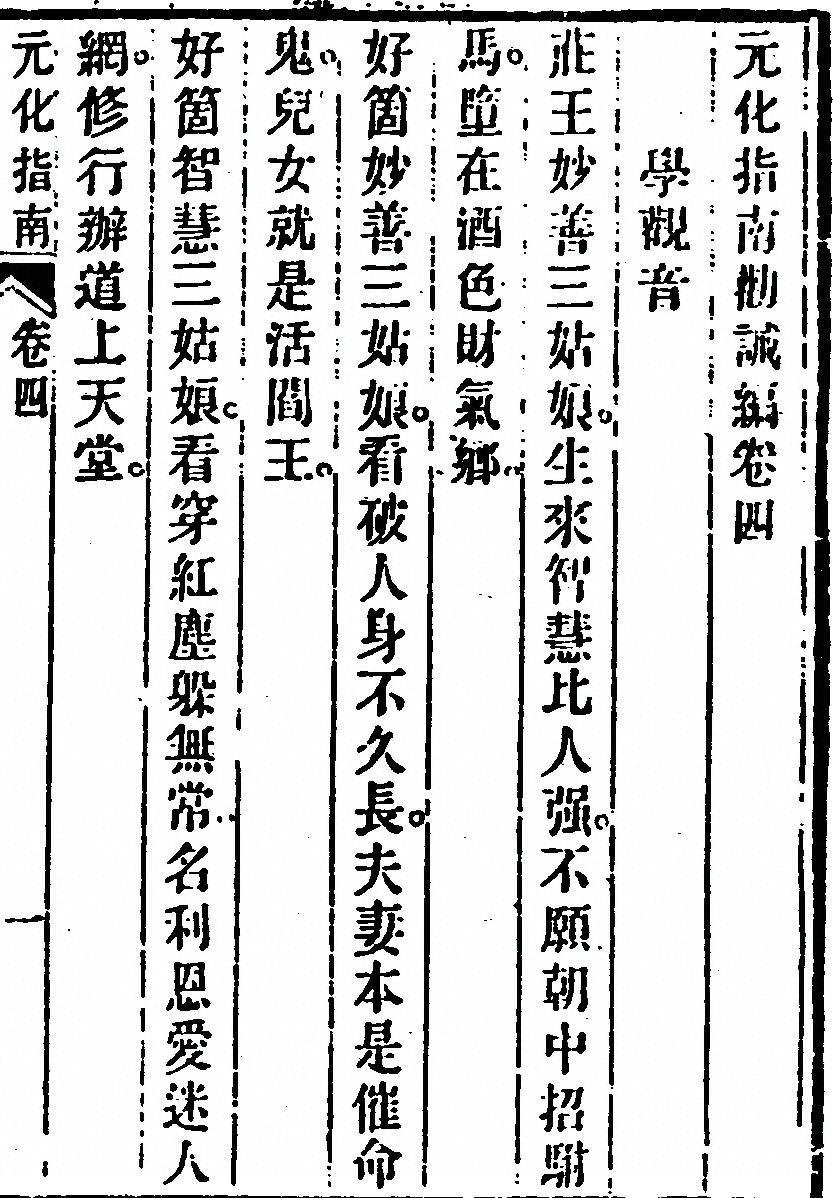 元化指南勸誡編卷四
學觀音
莊王妙善三姑娘。生來智慧比人强。不願朝中招駙
馬。墮在酒色財氣鄉。
好箇妙善三姑娘。看破人身不久長。夫妻本是催命
鬼。兒女就是活閻王。
好箇智慧三姑娘。看穿紅塵躲無常。名利恩愛迷人
網。修行辦道上天堂。
元化指南 卷四 一